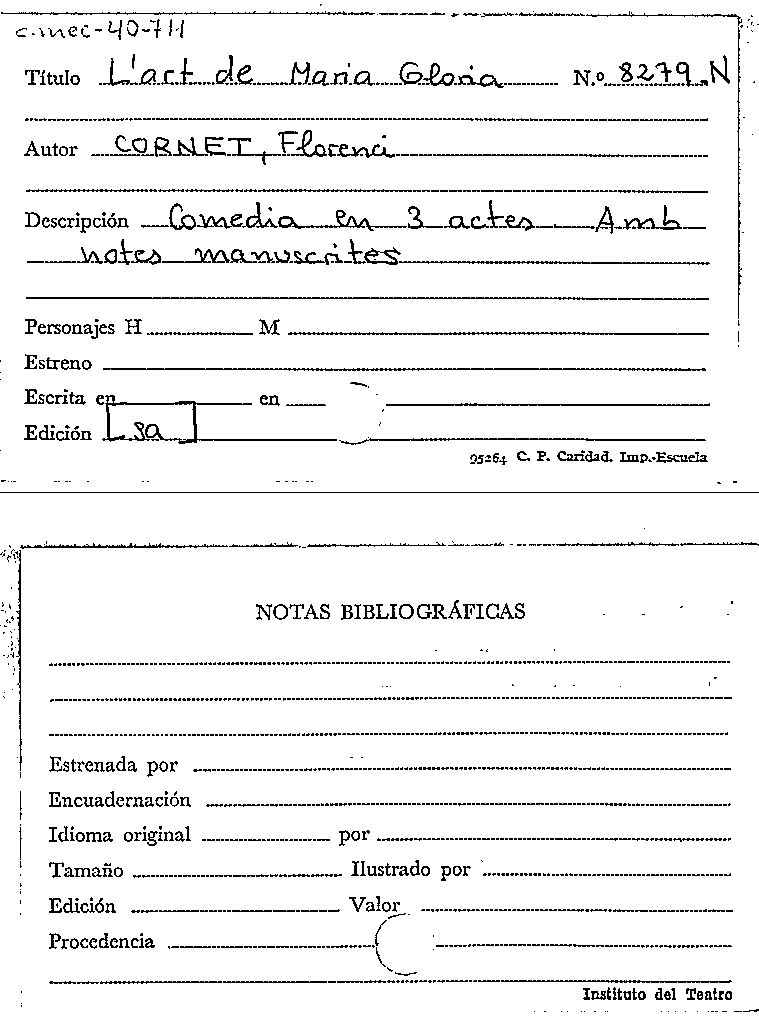 c.mec-40-711
Título L'art de Maria Gloria N.º 8279-N
Autor CORNET, Florenci
Descripción Comedia en 3 actes Amb
notes manuscrites
Personajes H M
Estreno
Escrita en en
Edición [sa]
95264 C. P. Caridad. Imp.-Escuela
NOTAS BIBLIOGRÁFICAS
Estrenada por
Encuadernación
Idioma original por
Tamaño Ilustrado por
Edición Valor
Procedencia
Instituto del Teatro